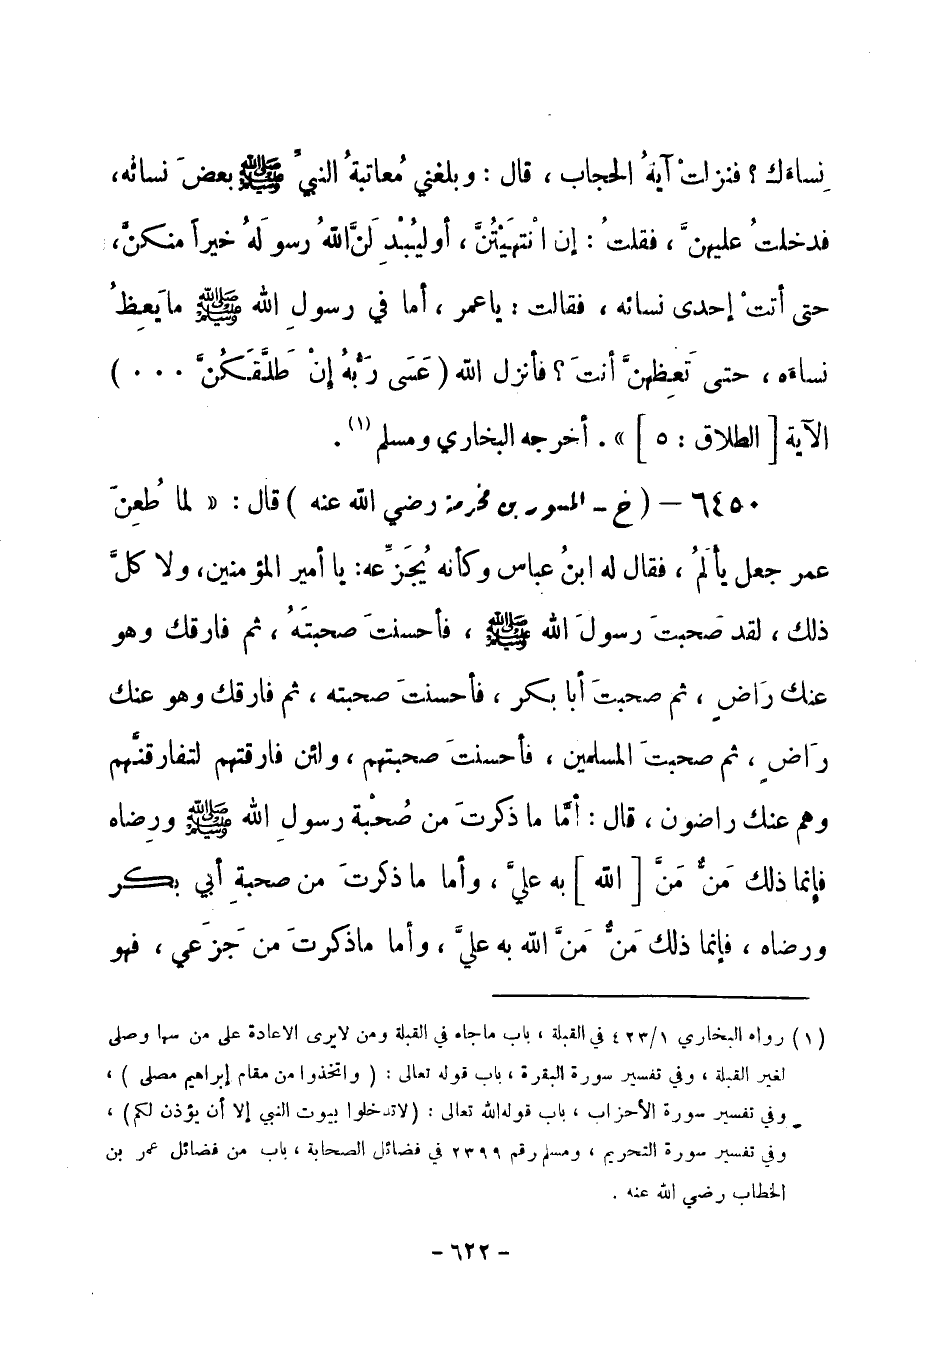 نساءَك ؟ فنزلتْ آيةُ الحجاب ، قال : وبلغني مُعاتبةُ النبيِّ ﷺ بعضَ نسائه،
فدخلتُ عليهنَّ ، فقلتُ : إن انْتهَيْتُنَّ ، أوليُبْدِلَنَّ اللهُ رسولَهُ خيراً منكنَّ،
حتى أتتْ إحدى نسائه ، فقالت : ياعمر ، أما في رسولِ الله ﷺ مايَعِظُ
نساءَه ، حتى تَعِظهنَّ أنتَ ؟ فأنزل الله ( عَسَى رَبُّهُ إِنْ طَلَّقَكُنَّ . . . )
الآية [ الطلاق : ٥ ] » . أخرجه البخاري ومسلم (١) .
٦٤٥٠ – ( خ - المسور بن مخرمة رضي الله عنه ) قال : « لما طُعِنَ
عمر جعل يألَمُ ، فقال له ابنُ عباس وكأنه يُجَزِّعه: يا أمير المؤمنين، ولا كلَّ
ذلك ، لقد صَحبتَ رسولَ الله ﷺ ، فأحسنتَ صحبتَهُ ، ثم فارقك وهو
عنك رَاضٍ ، ثم صحبتَ أبا بكر ، فأحسنتَ صحبته ، ثم فارقك وهو عنك
رَاضٍ ، ثم صحبتَ المسلمين ، فأحسنتَ صحبتهم ، ولئن فارقتهم لتفارقنَّهم
وهم عنك راضون ، قال : أمَّا ما ذكرتَ من صُحْبة رسولِ الله ﷺ ورِضاه
فإنما ذلك مَنٌّ مَنَّ [ الله ] به عليَّ ، وأما ما ذكرتَ من صحبةِ أبي بكر
ورضاه ، فإنما ذلك مَنٌّ مَنَّ الله به عليَّ ، وأما ماذكرتَ من جَزَعي ، فهو
(١) رواه البخاري ١/ ٤٢٣ في القبلة ، باب ماجاء في القبلة ومن لايرى الاعادة على من سها وصلى
لغير القبلة ، وفي تفسير سورة البقرة ، باب قوله تعالى : ( واتخذوا من مقام إبراهيم مصلى ) ،
وفي تفسير سورة الأحزاب ، باب قوله الله تعالى : (لاتدخلوا بيوت النبي إلا أن يؤذن لكم) ،
وفي تفسير سورة التحريم ، ومسلم رقم ٢٣٩٩ في فضائل الصحابة ، باب من فضائل عمر بن
الخطاب رضي الله عنه .
- ٦٢٢ -